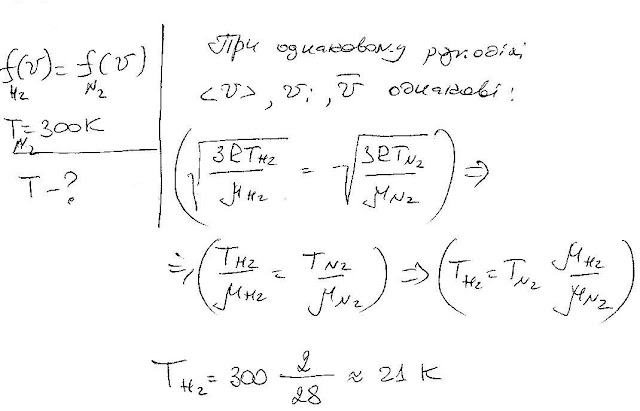 f(v) = f(v)
H₂ N₂
T = 300K
N₂
T – ?
При однаковому розподілі
<v>, vᵢ, v̅ однакові:
(√(3RT_H₂ / μ_H₂) = √(3RT_N₂ / μ_N₂)) ⇒
⇒ (T_H₂ / μ_H₂ = T_N₂ / μ_N₂) ⇒ (T_H₂ = T_N₂ μ_H₂ / μ_N₂)
T_H₂ = 300 2/28 ≈ 21 K